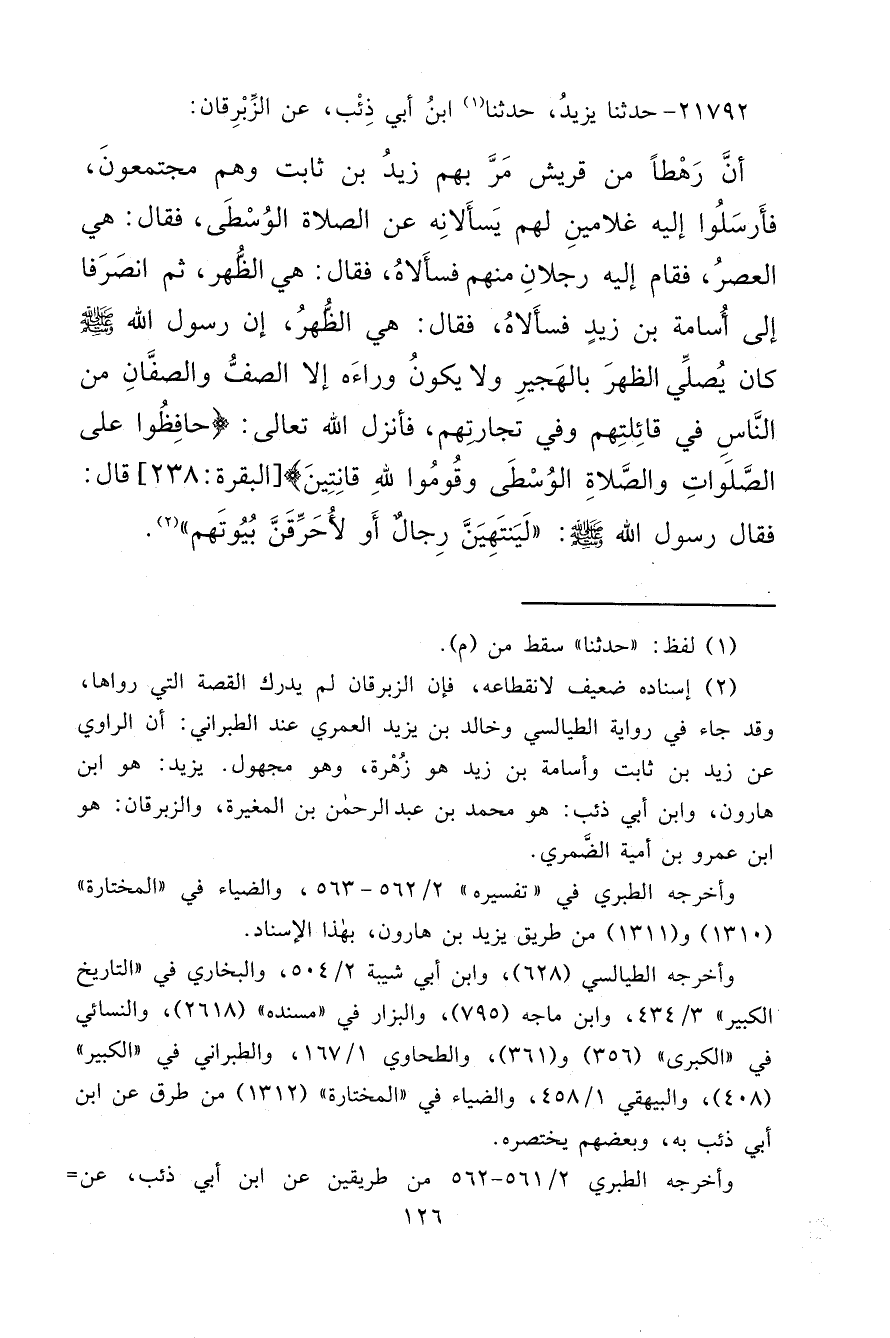 ٢١٧٩٢- حدثنا يزيدُ، حدثنا(١) ابنُ أبي ذِئْب، عن الزِّبْرِقان:
أنَّ رَهْطاً من قريش مَرَّ بهم زيدُ بن ثابت وهم مجتمعونَ،
فأَرسَلُوا إليه غلامينِ لهم يَسأَلانِه عن الصلاة الوُسْطَى، فقال: هي
العصرُ، فقام إليه رجلانِ منهم فسأَلاهُ، فقال: هي الظُّهر، ثم انصَرَفا
إلى أُسامة بن زيدٍ فسأَلاهُ، فقال: هي الظُّهرُ، إن رسول الله ﷺ
كان يُصلِّي الظهرَ بالهَجيرِ ولا يكونُ وراءَه إلا الصفُّ والصفَّانِ من
النَّاسِ في قائِلتِهم وفي تجارتِهم، فأنزل الله تعالى: ﴿حافِظُوا على
الصَّلَواتِ والصَّلاةِ الوُسْطَى وقُومُوا للهِ قانِتِينَ﴾[البقرة:٢٣٨] قال:
فقال رسول الله ﷺ: «لَيَنتَهِيَنَّ رِجالٌ أَو لأُحَرِّقَنَّ بُيُوتَهم»(٢).
(١) لفظ: «حدثنا» سقط من (م).
(٢) إسناده ضعيف لانقطاعه، فإن الزبرقان لم يدرك القصة التي رواها،
وقد جاء في رواية الطيالسي وخالد بن يزيد العمري عند الطبراني: أن الراوي
عن زيد بن ثابت وأسامة بن زيد هو زُهْرة، وهو مجهول. يزيد: هو ابن
هارون، وابن أبي ذئب: هو محمد بن عبدالرحمٰن بن المغيرة، والزبرقان: هو
ابن عمرو بن أمية الضَّمري.
وأخرجه الطبري في «تفسيره» ٢/ ٥٦٢-٥٦٣، والضياء في «المختارة»
(١٣١٠) و(١٣١١) من طريق يزيد بن هارون، بهٰذا الإسناد.
وأخرجه الطيالسي (٦٢٨)، وابن أبي شيبة ٢/ ٥٠٤، والبخاري في «التاريخ
الكبير» ٣/ ٤٣٤، وابن ماجه (٧٩٥)، والبزار في «مسنده» (٢٦١٨)، والنسائي
في «الكبرى» (٣٥٦) و(٣٦١)، والطحاوي ١/ ١٦٧، والطبراني في «الكبير»
(٤٠٨)، والبيهقي ١/ ٤٥٨، والضياء في «المختارة» (١٣١٢) من طرق عن ابن
أبي ذئب به، وبعضهم يختصره.
وأخرجه الطبري ٢/ ٥٦١-٥٦٢ من طريقين عن ابن أبي ذئب، عن=
١٢٦